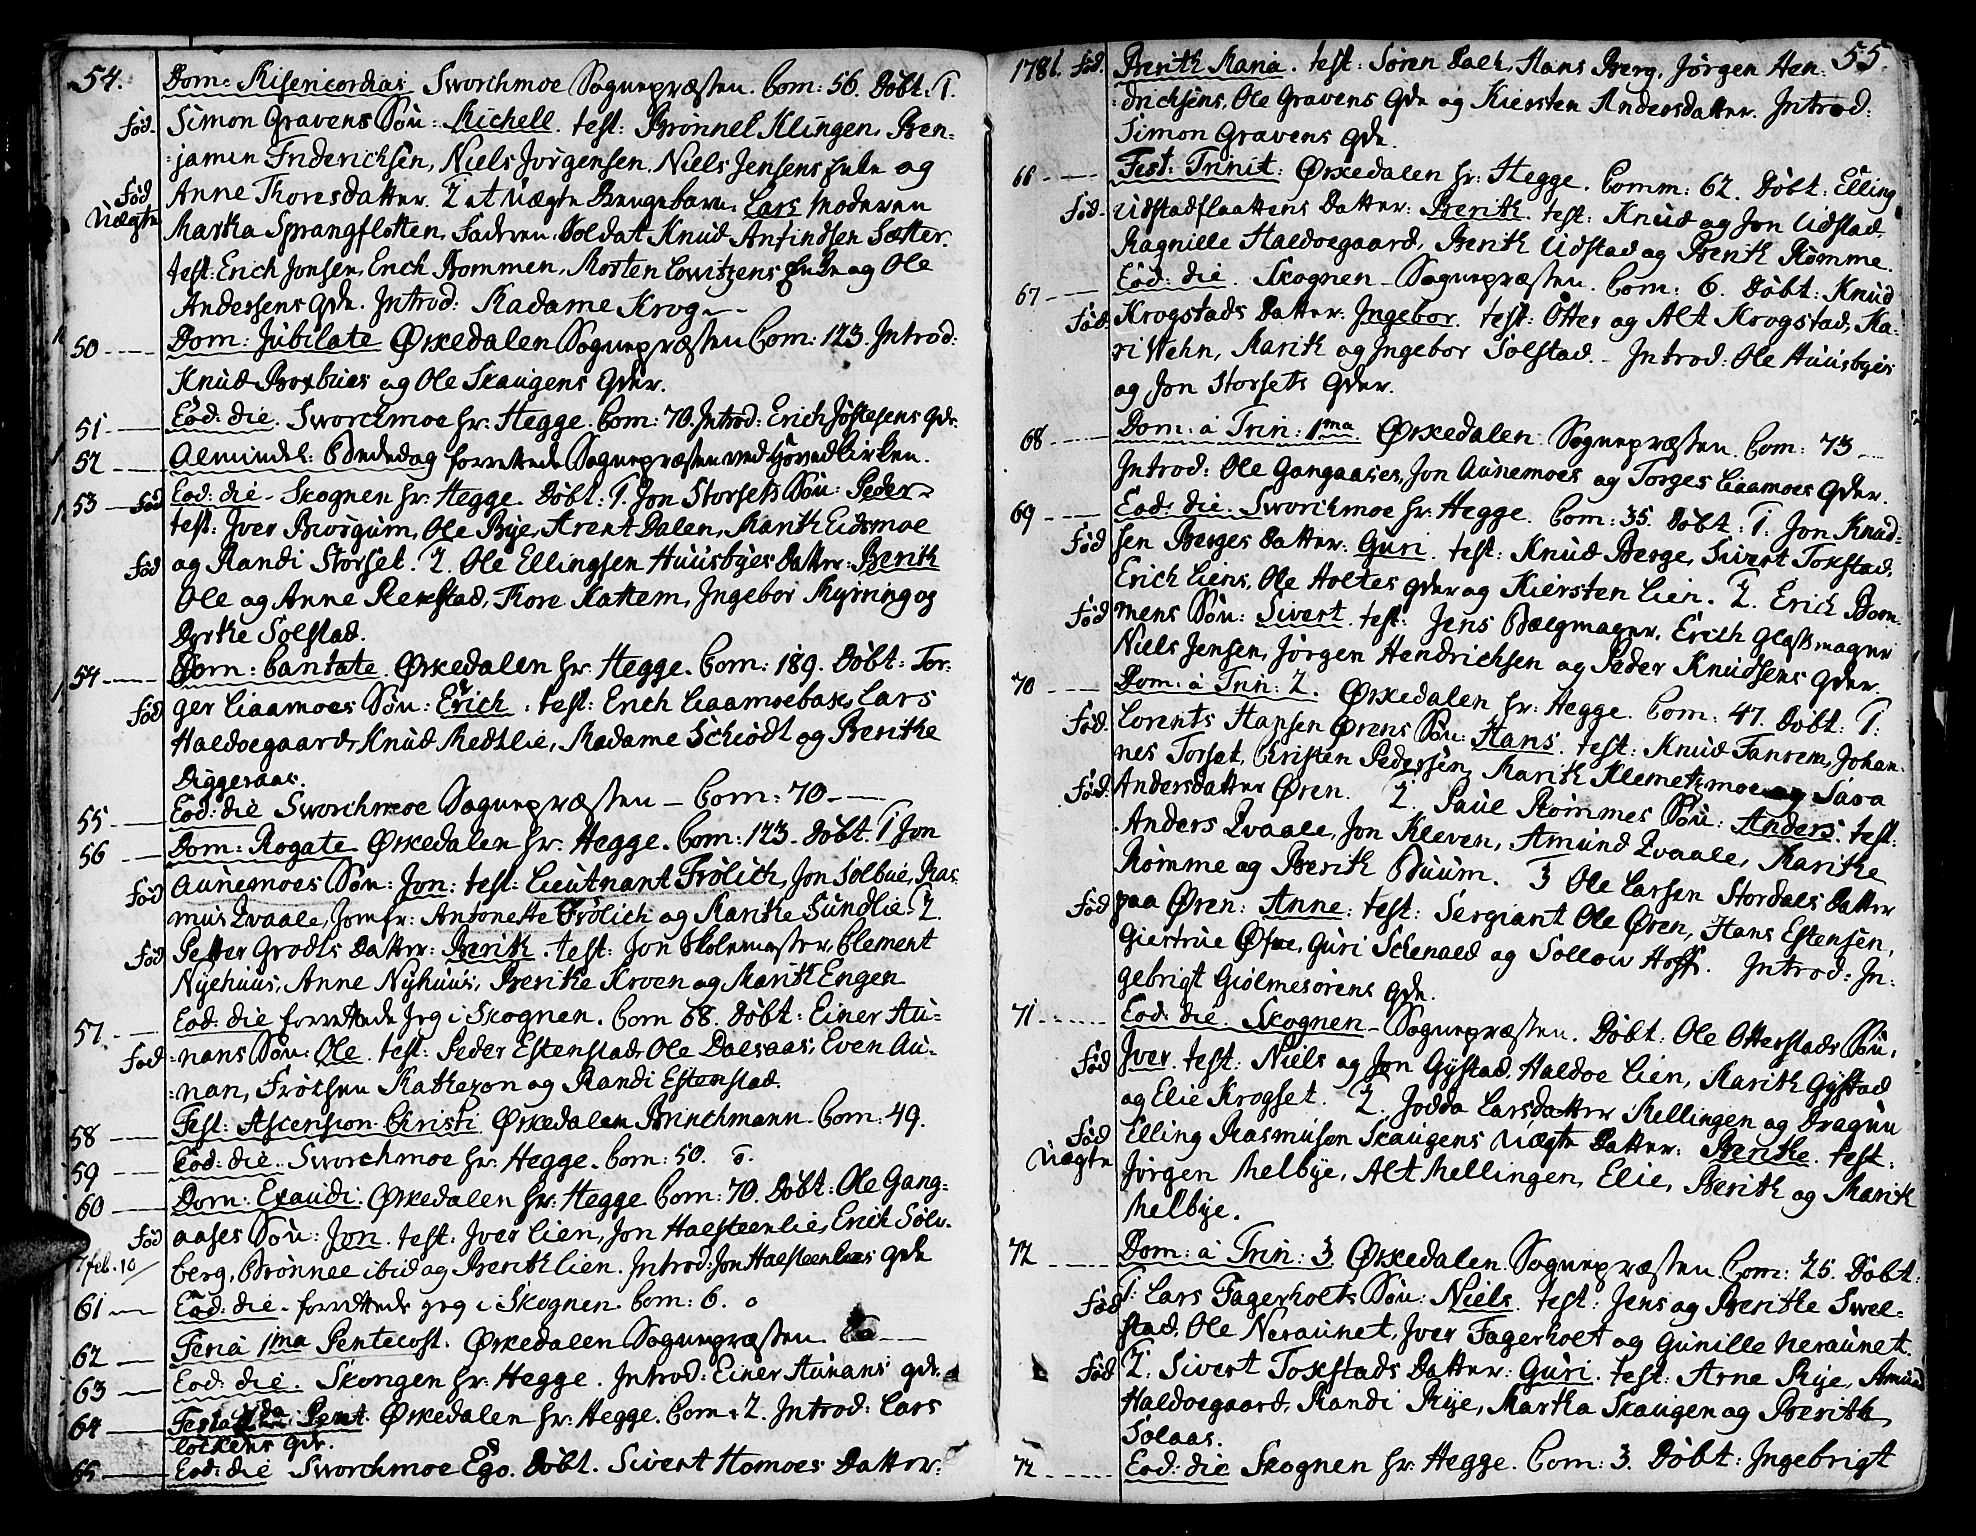 54. Dom: Misericordias Sworchmoe Sognepræsten. Com: 56. Døbt: 1.
Fød. Simon Gravens Søn: Michell. test: Brønnel Klingen, Ben-
jamin Friderichsen, Niels Jørgensen, Niels Jensens Enke og
Fød Uægte Anne Thoresdatter. 2 et Uægte Drengebarn. Lars Moderen
Marta Sprangflotten, Faderen Soldat Knud Anfindsen Sætter.
test: Erich Jonsen, Erich Bommen, Morten Lowitzens Enke og Ole
Andersens Qde. Introd: Madame Krog
50 Dom: Jubilate Ørkedalen Sognepræsten Com: 123. Introd:
Knud Boxbues og Ole Skaugens Qder.
51 Eod: die. Sworchmoe hr: Hegge. Com: 70. Introd: Erich Jostesens Qde.
52 Almindel: Bededag forrettede Sognepræsten ved Hovedkirken.
53 Fød Eod: die. Skognen hr: Hegge. Døbt: 1. Jon Storsets Søn: Peder
test: Iver Burgum, Ole Bye, Arent Dalen, Marith Eidsmoe
Fød og Randi Storset. 2. Ole Ellingsen Huusbyes Datter: Berith
Ole og Anne Renstad, Thore Kattem, Ingebor Myrning og
Dyrke Solstad.
54 Dom: Cantate. Ørkedalen hr: Hegge. Com: 189. Døbt: Tor-
Fød ger Liaamoes Søn: Erich. test: Erich Liaamoebak, Lars
Haldoegaard, Knud Medtlie, Madame Schiødt og Berithe
Diggeraas.
55 Eod: die Sworchmoe Sognepræsten Com: 70
56 Dom: Rogate Ørkedalen hr: Hegge. Com: 123. Døbt: 1 Jon
Fød Aunemoes Søn: Jon: test: Lieutnant Frölich, Jon Solbue, Ras
mus Qvaale, Jomfr: Antonette Frölich og Marithe Sundlie. 2.
Fød Petter Grodts Datter: Berith. test: Jon Skolemester, Clement
Nyehuus, Anne Nyhuus, Berithe Kroen og Marith Engen
57 Eod: die forrettede jeg i Skognen. Com 68. Døbt: Einer Au-
Fød nans Søn: Ole. test: Peder Estenstad, Ole Dalsaas, Even Au-
nan, Frøthen Katheson og Randi Estenstad.
58 Fest: Ascension Christi Ørkedalen Brinchmann. Com: 49.
59 Eod: die. Sworchmoe hr: Hegge. Com: 50. o.
60 Dom: Exaudi. Ørkedalen hr: Hegge Com: 70. Døbt: Ole Gang-
Fød aases Søn: Jon. test: Iver Lien, Jon Halsteenlie, Erich Solv-
7 feb. 10/ berg, Brønnee ibid og Berith Lien. Introd: Jon Halsteenlies Qde
61 Eod: die. forrettede jeg i Skognen. Com: 6. o
62 Feria 1ma Pentecost. Ørkedalen Sognepræsten.
63 Eod: die. Skongen hr: Hegge. Introd: Einer Aunans Qde.
64 Feria 2da Pent. Ørkedalen hr: Hegge. Com: 2. Introd: Lars
Lockens Qde.
65 Eod: die Sworchmoe Ego. Døbt. Sivert Homoes Datter:
1781. 55
Fød. Berith Maria. test: Søren Dalh, Hans Berg, Jørgen Hen-
drichsens, Ole Gravens Qde og Kiersten Andersdatter. Introd:
Simon Gravens Qde.
66 Fest: Trinit: Ørkedalen hr: Hegge. Comm: 62. Døbt: Elling
Fød. Udstadslaattens Datter: Berith. test: Knud og Jon Udstad,
Ragnille Haldoegaard, Berith Udstad og Berith Rømme.
67 Eod: die. Skognen Sognepræsten. Com: 6. Døbt: Knud
Fød. Krogstads Datter: Ingebor. test: Otter og Alt Krogstad, Ka-
ri Wehn, Marith og Ingebor Solstad. Introd: Ole Huusbyes
og Jon Storsets Qder.
68 Dom: a Trin: 1ma Ørkedalen Sognepræsten. Com: 73
Introd: Ole Gangaases, Jon Aunemoes og Torges Liaamoes Qder.
69 Eod: die. Sworchmoe hr: Hegge. Com: 35. Døbt: 1. Jon Knud-
Fød sen Berges Datter: Guri. test: Knud Berge, Sivert Toxstad,
Erich Liens, Ole Holtes Qder og Kiersten Lien. 2. Erich Bom-
Fød mens Søn: Sivert. test: Jens Bælgmager, Erich Glassmager
Niels Jensen, Jørgen Hendrichsen og Peder Knudsens Qder.
70 Dom: a Trin: 2. Ørkedalen hr: Hegge. Com: 47. Døbt: 1.
Fød. Lorents Hansen Ørens Søn: Hans. test: Knud Fanrem, Johan-
nes Torset, Christen Pedersen, Marith Klemetsmoe og Sava
Fød. Andersdatter Øren. 2. Paul Rømmes Søn: Anders. test:
Anders Qvaale, Jon Kleven, Amund Qvaale, Marithe
Rømme og Berith Buum. 3 Ole Larsen Stordals Datter
Fød paa Øren: Anne: test: Sergiant Ole Øren, Hans Estensen,
Giertrue Øfne, Guri Schenald og Sollow Hoff. Introd: In-
gebrigt Giolmesørens Qde.
71 Eod: die. Skognen Sognepræsten. Døbt: Ole Otterstads Søn,
Fød Iver. test: Niels og Jon Gystad, Haldoe Lien, Marith Gystad
og Elie Krogset. 2. Jodda Larsdatter Mellingen og Dragun
Fød Uægte Elling Rasmusen Skaugens Uægte Datter: Berithe. test:
Jørgen Melbye, Alt Mellingen, Elie, Berith og Marith
Melbye.
72 Dom: a Trin: 3 Ørkedalen Sognepræsten. Com: 25. Døbt:
Fød 1: Lars Fagerholts Søn: Niels. test: Jens og Berithe Swel-
stad, Ole Neraunet, Iver Fagerholt og Gunille Neraunet.
Fød 2. Sivert Toxstads Datter: Guri. test: Arne Rye, Amund
Haldoegaard, Randi Rye, Martha Skaugen og Berith
Solaas.
72 Eod: die Skognen hr: Hegge. Com: 3. Døbt: Ingebrigt